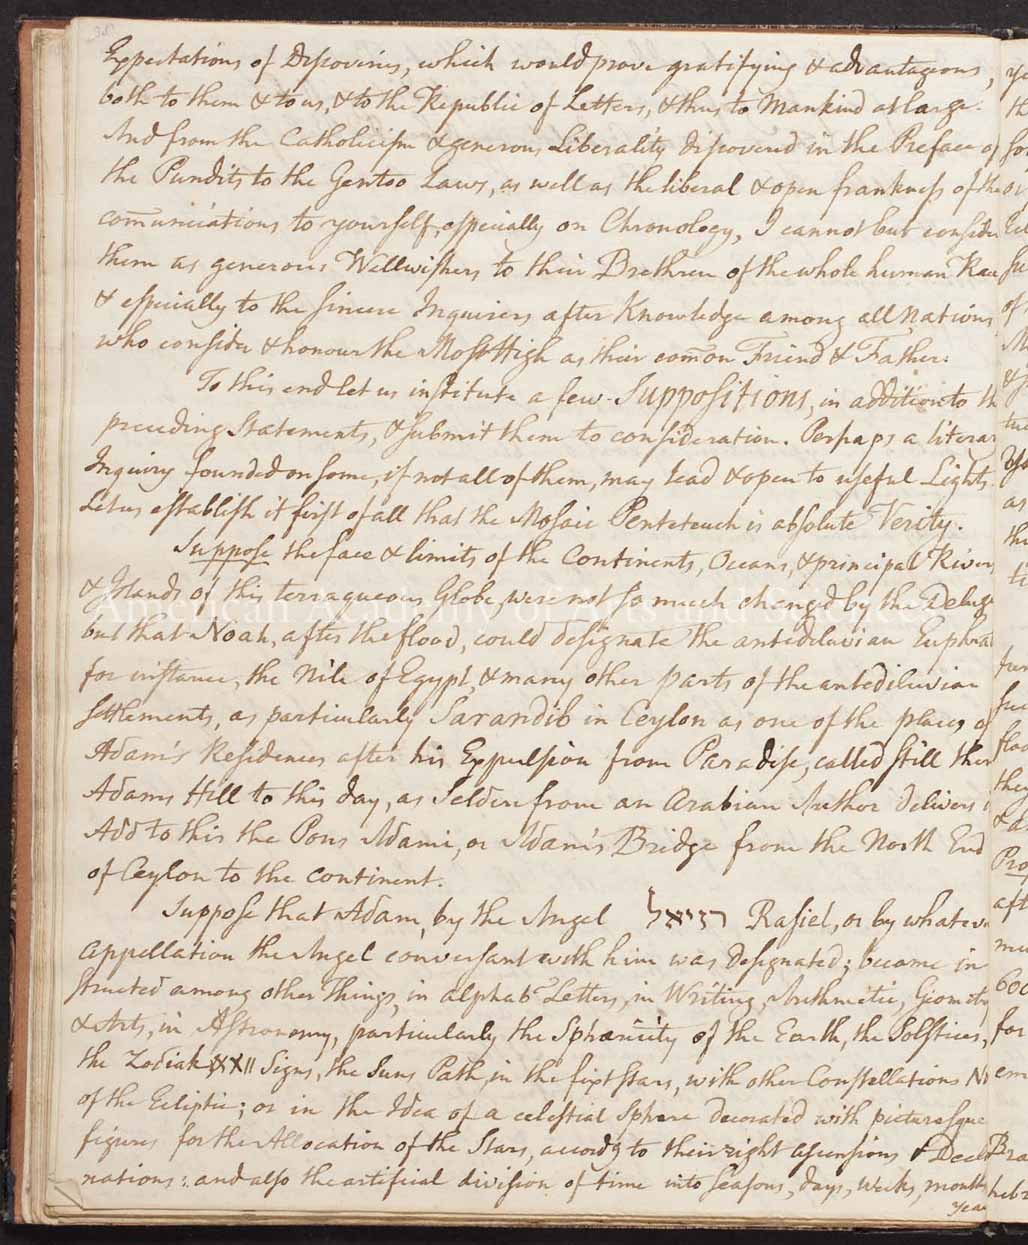 Expectations of Discoveries, which would prove gratifying & advantageous,
both to them & to us, & to the Republic of Letters, & thus to Mankind at large.
And from the Catholicism & generous Liberality discovered in the Preface of
the Pundits to the Gentoo Laws, as well as the liberal & open frankness of the
com̄unications to yourself, especially on Chronology, I cannot but consider
them as generous Wellwishers to their Brethren of the whole human Race
& especially to the sincere Inquirers after Knowledge among all Nations
who consider & honour the Most High as their com̄on Friend & Father.
To this end let us institute a few Suppositions, in addition to th
preceeding Statements, & submit them to consideration. Perhaps a literar
Inquiry founded on some, if not all of them, may lead & open to useful Lights.
Let us establish it first of all that the Mosaic Penteteuch is absolute Verity.
Suppose the face & limits of the Continents, Oceans, & principal Rivers
& Islands of this terraqueous Globe, were not so much changed by the Deluge
but that Noah, after the flood, could designate the antediluvian Euphra
for instance, the Nile of Egypt, & many other parts of the antediluvian
settlements, as particularly Sarandib in Ceylon as one of the places of
Adam's Residences after his Expulsion from Paradise, called still ther
Adams Hill to this day, as Selden from an Arabian Author delivers i
Add to this the Pons Adami, or Adam's Bridge from the North End
of Ceylon to the continent.
Suppose that Adam, by the Angel רזיאל Rasiel, or by whatev
appellation the Angel conversant with him was designated; became in
structed among other things, in alphab.c Letters, in Writing, Arithmetic, Geometry
& Arts, in Astronomy, particularly the Sphæricity of the Earth, the Solstices,
the Zodiak XII Signs, the Suns Path in the fixt stars, with other Constellations N
of the Ecliptic; or in the Idea of a celestial Sphere decorated with picturesque
figures for the Allocation of the Stars, accordg to their right ascensions & Decli
nations: and also the artificial division of time into seasons, days, weeks, months
Year
American Academy of Arts and Sciences